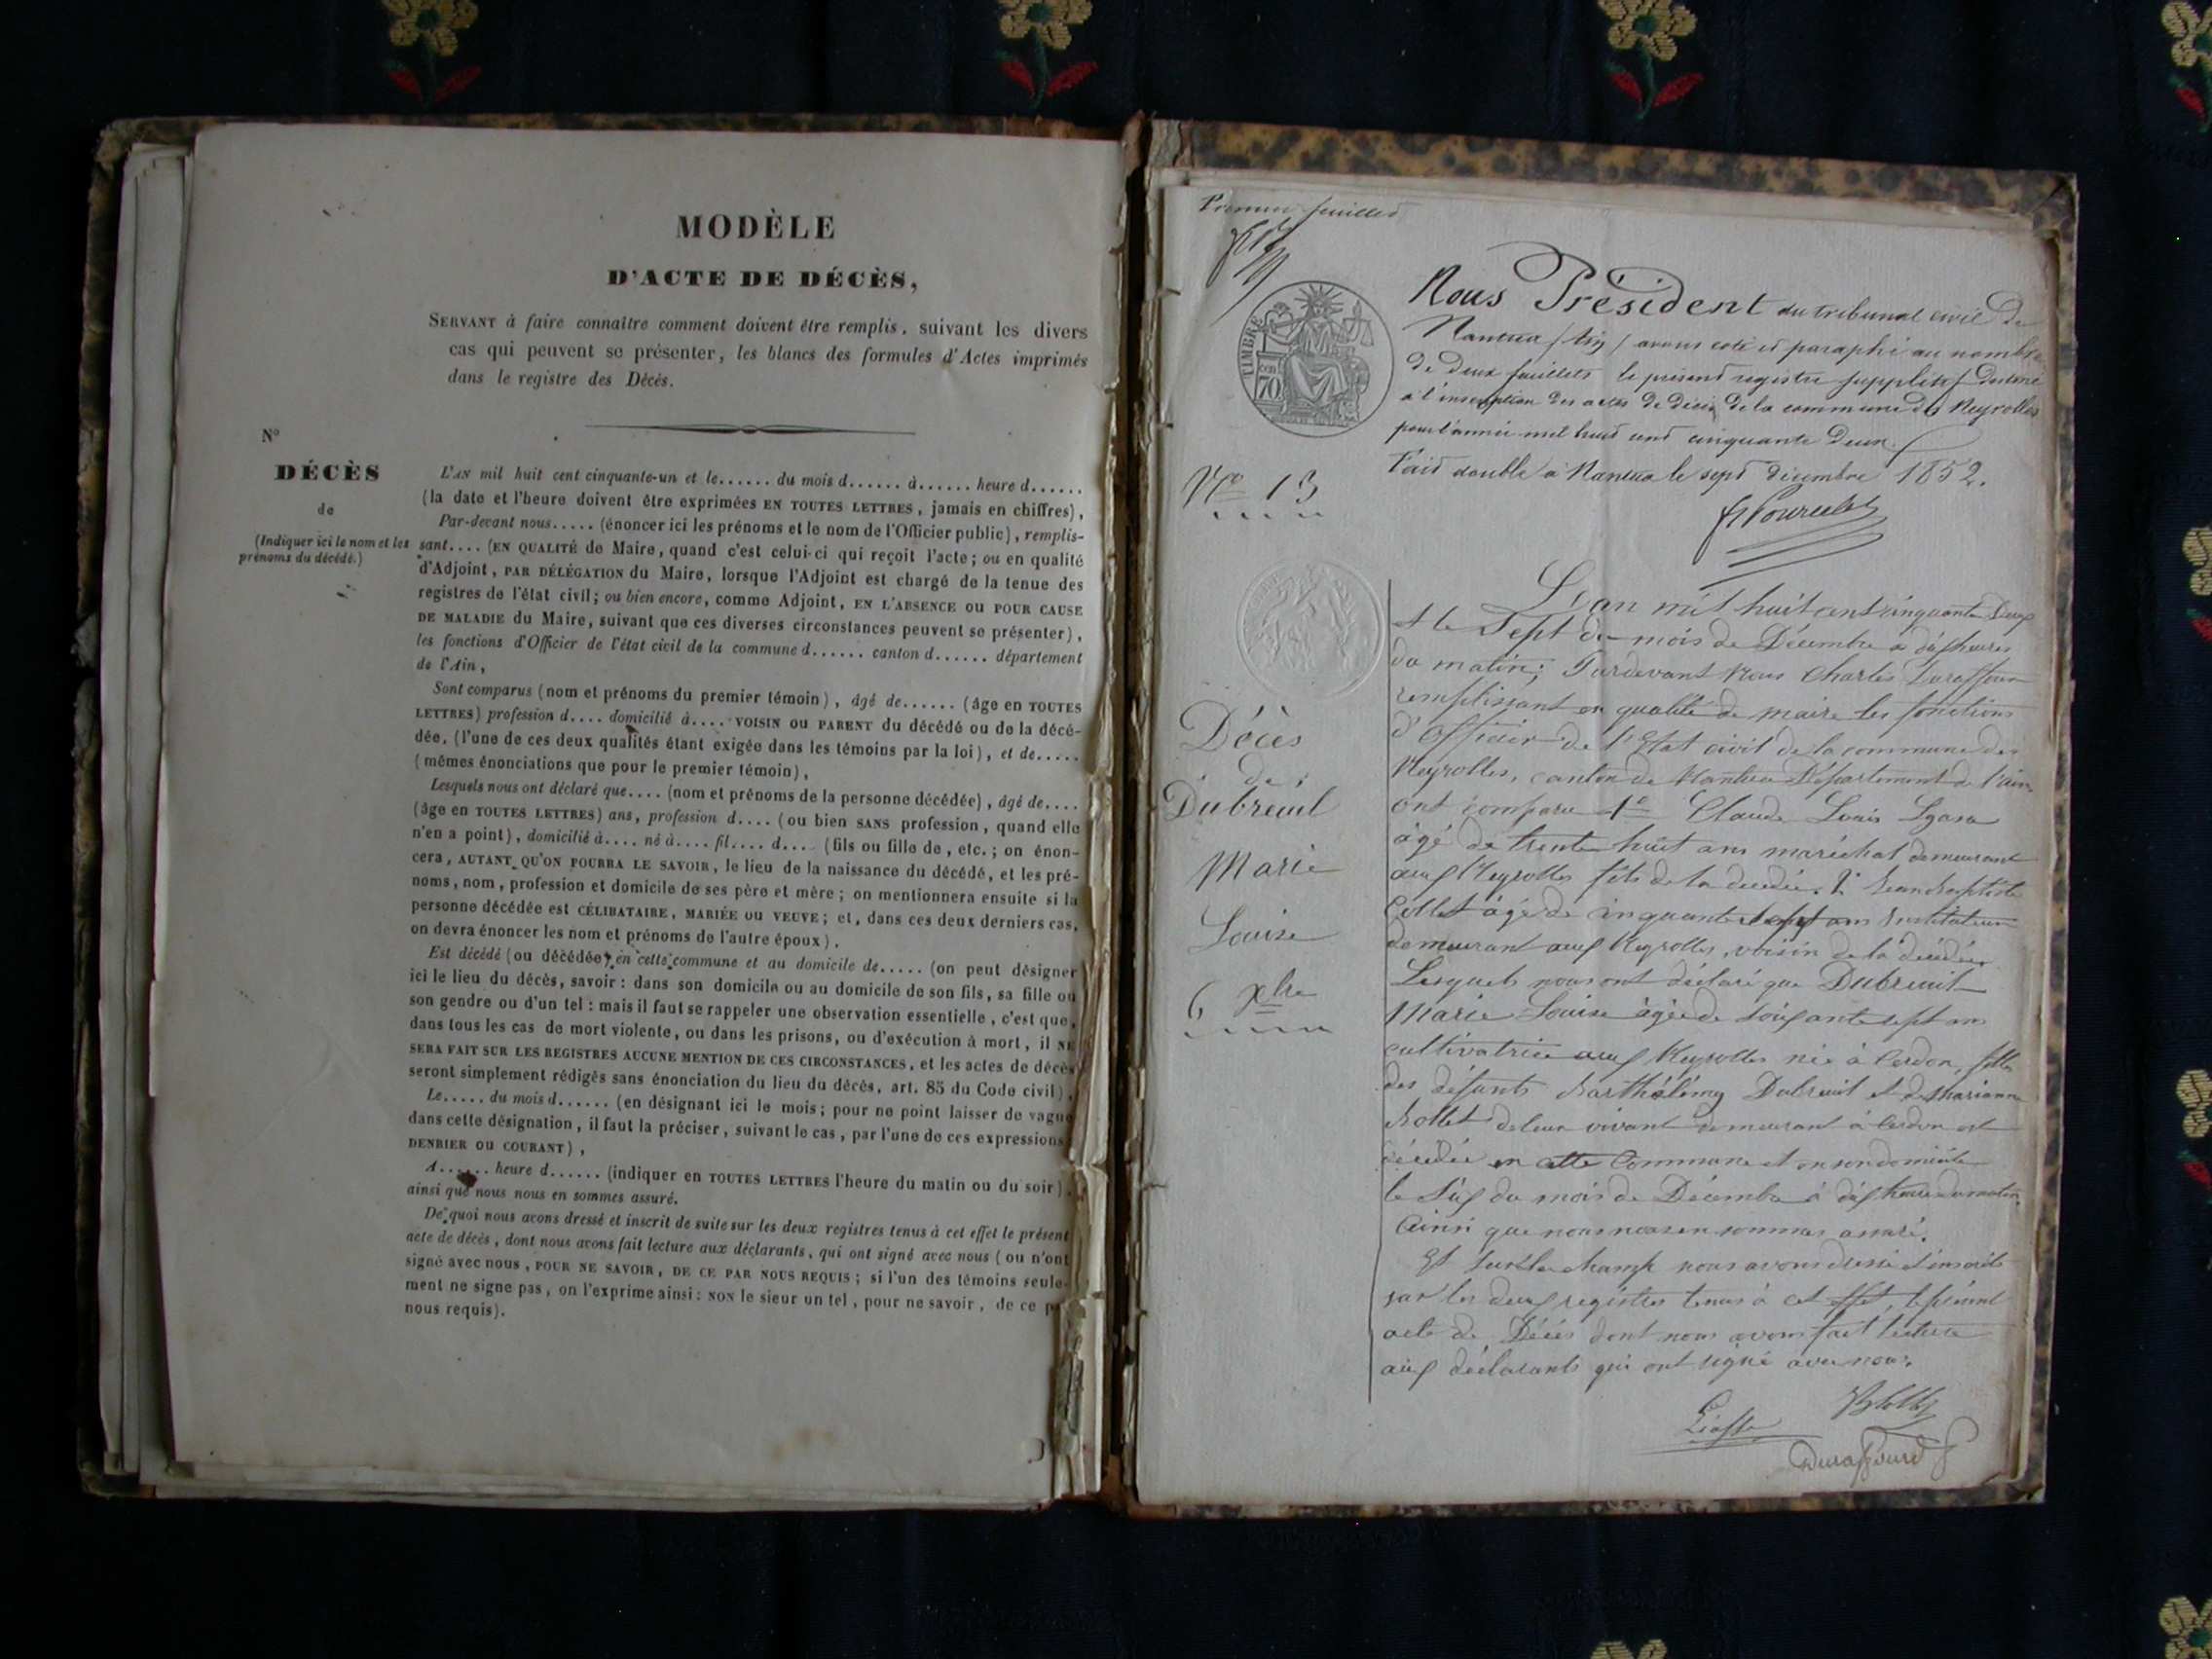 MODÈLE
D'ACTE DE DÉCÈS,
SERVANT à faire connaître comment doivent être remplis, suivant les divers
cas qui peuvent se présenter, les blancs des formules d'Actes imprimés
dans le registre des Décès.
N°
DÉCÈS
de
(Indiquer ici le nom et les
prénoms du décédé.)
L'AN mil huit cent cinquante-un et le...... du mois d...... à...... heure d......
(la date et l'heure doivent être exprimées EN TOUTES LETTRES, jamais en chiffres),
Par-devant nous..... (énoncer ici les prénoms et le nom de l'Officier public), remplis-
sant.... (EN QUALITÉ de Maire, quand c'est celui-ci qui reçoit l'acte; ou en qualité
d'Adjoint, PAR DÉLÉGATION du Maire, lorsque l'Adjoint est chargé de la tenue des
registres de l'état civil; ou bien encore, comme Adjoint, EN L'ABSENCE OU POUR CAUSE
DE MALADIE du Maire, suivant que ces diverses circonstances peuvent se présenter),
les fonctions d'Officier de l'état civil de la commune d...... canton d...... département
de l'Ain,
Sont comparus (nom et prénoms du premier témoin), âgé de...... (âge en TOUTES
LETTRES) profession d.... domicilié à.... VOISIN OU PARENT du décédé ou de la décé-
dée, (l'une de ces deux qualités étant exigée dans les témoins par la loi), et de.....
(mêmes énonciations que pour le premier témoin),
Lesquels nous ont déclaré que.... (nom et prénoms de la personne décédée), âgé de....
(âge en TOUTES LETTRES) ans, profession d.... (ou bien SANS profession, quand elle
n'en a point), domicilié à.... né à.... fil.... d.... (fils ou fille de, etc.; on énon-
cera, AUTANT QU'ON POURRA LE SAVOIR, le lieu de la naissance du décédé, et les pré-
noms, nom, profession et domicile de ses père et mère; on mentionnera ensuite si la
personne décédée est CÉLIBATAIRE, MARIÉE OU VEUVE; et, dans ces deux derniers cas,
on devra énoncer les nom et prénoms de l'autre époux).
Est décédé (ou décédée) en cette commune et au domicile de..... (on peut désigner
ici le lieu du décès, savoir: dans son domicile ou au domicile de son fils, sa fille ou
son gendre ou d'un tel: mais il faut se rappeler une observation essentielle, c'est que,
dans tous les cas de mort violente, ou dans les prisons, ou d'exécution à mort, il NE
SERA FAIT SUR LES REGISTRES AUCUNE MENTION DE CES CIRCONSTANCES, et les actes de décès
seront simplement rédigés sans énonciation du lieu du décès, art. 85 du Code civil),
Le..... du mois d...... (en désignant ici le mois; pour ne point laisser de vague
dans cette désignation, il faut la préciser, suivant le cas, par l'une de ces expressions
DERNIER OU COURANT),
A...... heure d...... (indiquer en TOUTES LETTRES l'heure du matin ou du soir)
ainsi que nous nous en sommes assuré.
De quoi nous avons dressé et inscrit de suite sur les deux registres tenus à cet effet le présent
acte de décès, dont nous avons fait lecture aux déclarants, qui ont signé avec nous (ou n'ont
signé avec nous, POUR NE SAVOIR, DE CE PAR NOUS REQUIS; si l'un des témoins seule-
ment ne signe pas, on l'exprime ainsi: NON le sieur un tel, pour ne savoir, de ce
nous requis).
Premier feuillet
TIMBRE
70
Nous Président du tribunal civil de
Nantua (Ain) avons coté et paraphé au nombre
de deux feuillets le présent registre supplétif destiné
à l'inscription des actes de décès de la commune des Neyrolles
pour l'année mil huit cent cinquante deux.
Fait double à Nantua le sept décembre 1852.
N° 13
Décès
de
Dubreuil
Marie
Louise
6 xbre
L'an mil huit cent cinquante Deux
et le Sept du mois de Décembre à dix heures
du matin; Pardevant Nous Charles Duraffour
remplissant en qualité de maire les fonctions
d'Officier de l'Etat civil de la commune des
Neyrolles, canton de Nantua Département de l'ain,
ont comparu 1° Claude Louis
âgé de trente huit ans maréchal demeurant
aux Neyrolles fils de la décédée. 2° Jean Baptiste
Collet âgé de cinquante sept ans Instituteur
demeurant aux Neyrolles, voisin de la décédée
Lesquels nous ont déclaré que Dubreuil
Marie Louise âgée de soixante sept ans
cultivatrice aux Neyrolles née à Cerdon, fille
des défunts Barthélémy Dubreuil et de Marianne
Bollet de leur vivant demeurant à Cerdon est
décédée en cette Commune et en son domicile
le Six du mois de Décembre à dix heures du matin,
Ainsi que nous nous en sommes assuré.
Et sur le champ nous avons dressé et inscrit
sur les deux registres tenus à cet effet, le présent
acte de Décès dont nous avons fait lecture
aux déclarants qui ont signé avec nous.
Duraffourd